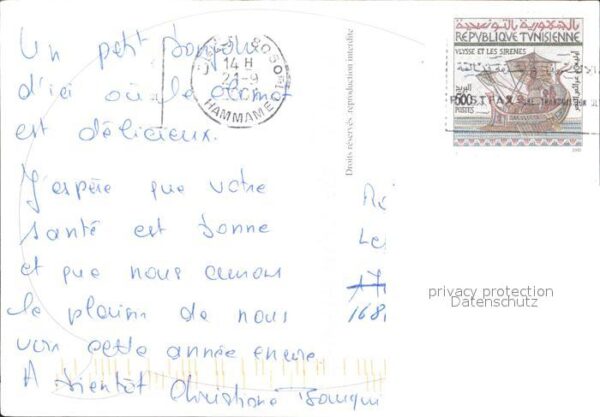 Un petit bonjour
d'ici où le climat
est délicieux.
J'espère que votre
santé est bonne
et que nous aurons
le plaisir de nous
voir cette année encore
A bientôt Christiane
8050
14 H
21-9
HAMMAME
Droits réservés reproduction interdite
الجمهورية التونسية
REPUBLIQUE TUNISIENNE
ULYSSE ET LES SIRENES
500
البريد
POSTES
Le
168
privacy protection
Datenschutz